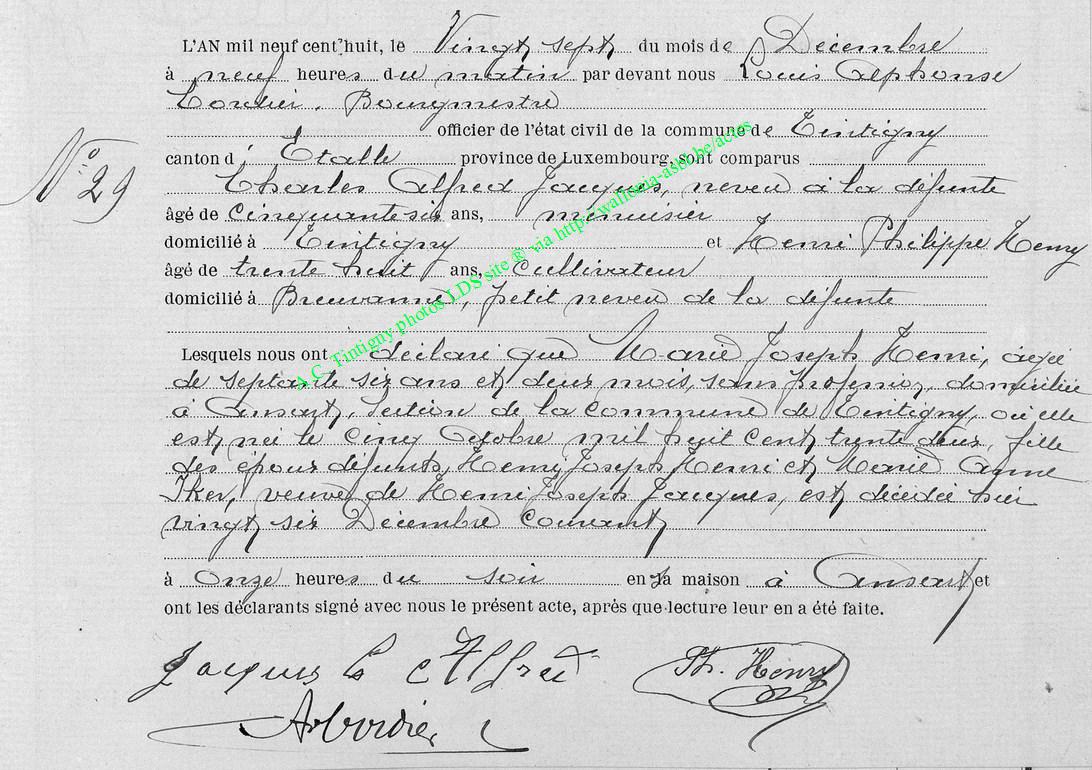 L'AN mil neuf cent huit, le Vingt sept du mois de Décembre
à neuf heures du matin par devant nous Louis Alphonse
Cordier, Bourgmestre
officier de l'état civil de la commune de Tintigny
N° 29
canton d' Etalle province de Luxembourg, sont comparus
Charles Alfred Jacques, neveu à la défunte
âgé de cinquante six ans, menuisier
domicilié à Tintigny et Henri Philippe Henry
âgé de trente huit ans, cultivateur
domicilié à Breuvanne, petit neveu de la défunte
Lesquels nous ont déclaré que Marie Joseph Henri, agée
de septante six ans et deux mois, sans profession, domiciliée
à Ansart, section de la commune de Tintigny, où elle
est née le cinq Octobre mil huit cent trente deux, fille
des époux défunts, Henry Joseph Henri et Marie Anne
Iker, veuve de Henri Joseph Jacques, est décédée hier
vingt six Décembre courant
à onze heures du soir en sa maison à Ansart et
ont les déclarants signé avec nous le présent acte, après que lecture leur en a été faite.
Jacques C Alfred
Ph. Henry
A Cordier
A.C. Tintigny photos LDS site ® via http://wallonia-asbl.be/actes